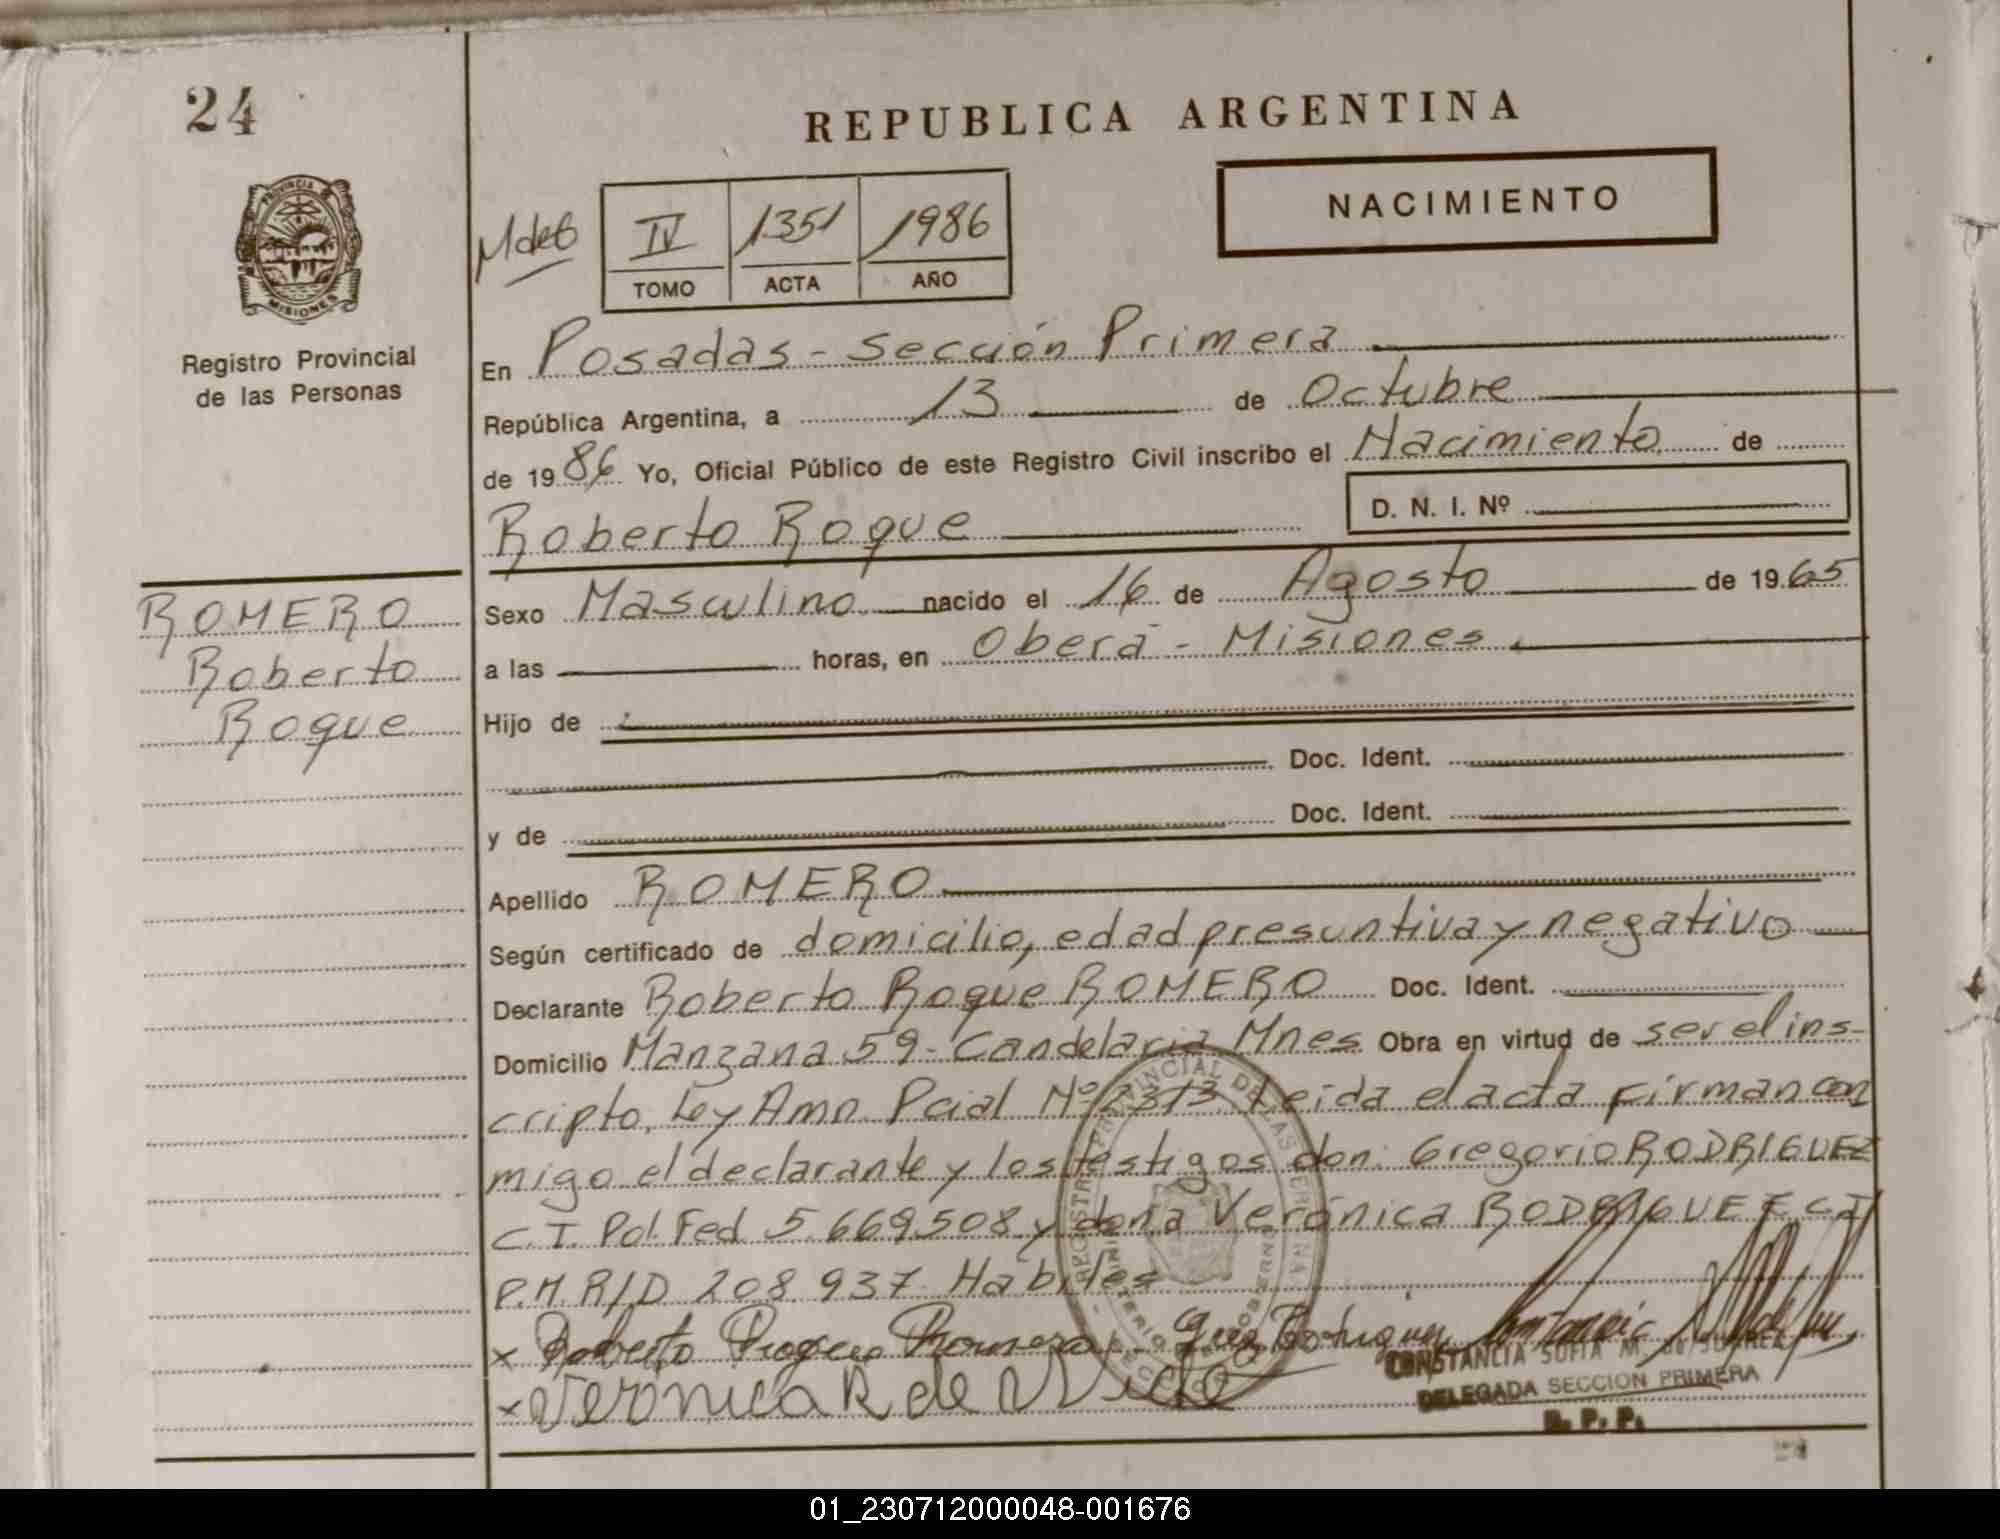 24
REPUBLICA ARGENTINA
NACIMIENTO
IV 1351 1986
TOMO ACTA AÑO
PROVINCIA
MISIONES
Registro Provincial
de las Personas
En Posadas - Sección Primera
República Argentina, a 13 de Octubre
de 1986 Yo, Oficial Público de este Registro Civil inscribo el Nacimiento de
D. N. I. Nº
Roberto Roque
ROMERO
Roberto
Roque
Sexo Masculino nacido el 16 de Agosto de 1965
a las horas, en Oberá - Misiones
Hijo de
Doc. Ident.
y de Doc. Ident.
Apellido ROMERO
Según certificado de domicilio, edad presuntiva y negativo
Declarante Roberto Roque ROMERO Doc. Ident.
Domicilio Manzana 59 - Candelaria Mnes Obra en virtud de ser el ins-
cripto, Ley Amn Pcial Nº 2313 Leida el acta firman con
migo el declarante y los testigos don: Gregorio RODRIGUEZ
C.I. Pol. Fed 5.669508 y doña Verónica RODRIGUEZ C.I
P.M. R/D 208.937 Habiles
x Roberto Roque Romero
x Veronica R de
CONSTANCIA SOFIA M. de SUAREZ
DELEGADA SECCION PRIMERA
R. P. P.
01_230712000048-001676